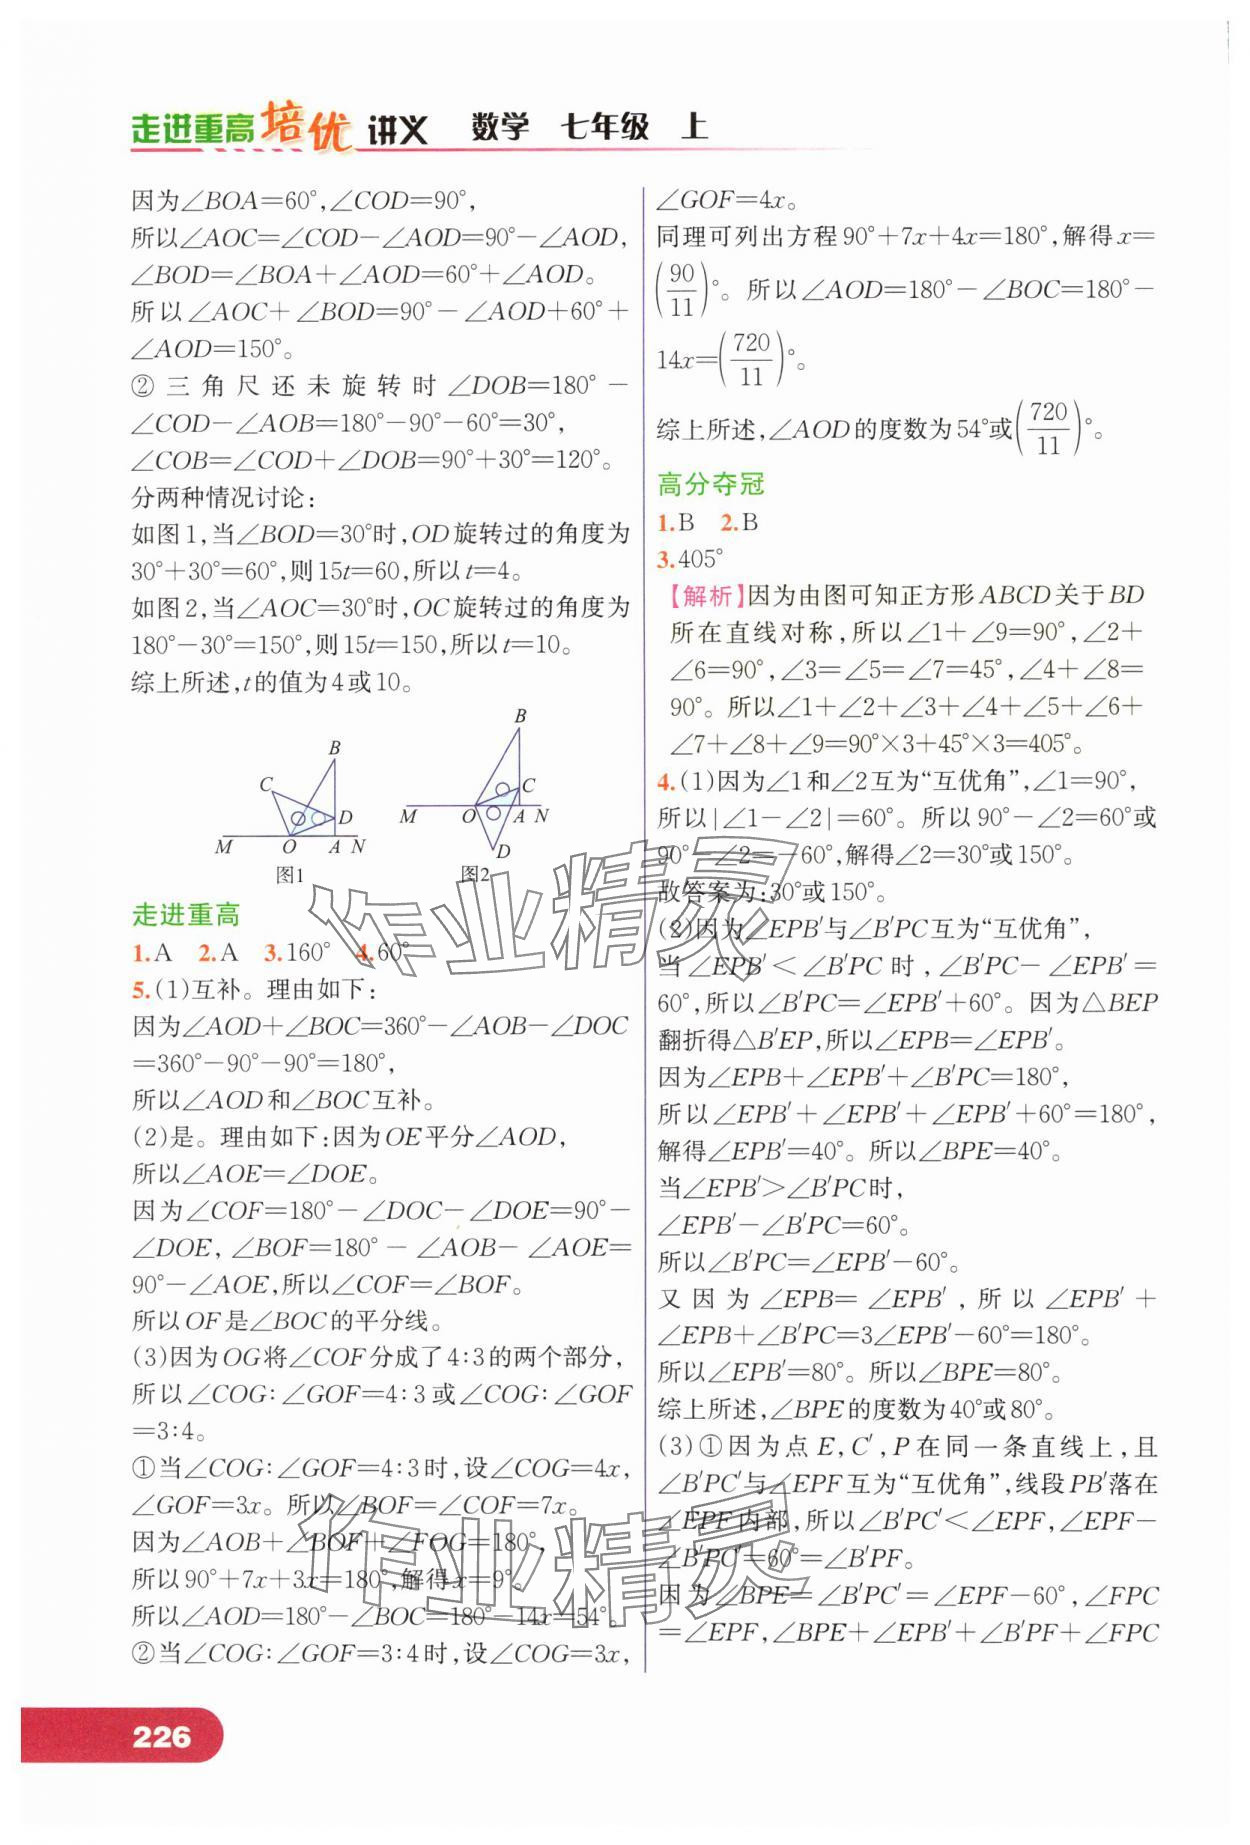 走进重高培优 讲义 数学 七年级 上
因为∠BOA=60°,∠COD=90°,
所以∠AOC=∠COD-∠AOD=90°-∠AOD,
∠BOD=∠BOA+∠AOD=60°+∠AOD。
所以∠AOC+∠BOD=90°-∠AOD+60°+
∠AOD=150°。
②三角尺还未旋转时∠DOB=180°-
∠COD-∠AOB=180°-90°-60°=30°,
∠COB=∠COD+∠DOB=90°+30°=120°。
分两种情况讨论:
如图1,当∠BOD=30°时,OD旋转过的角度为
30°+30°=60°,则15t=60,所以t=4。
如图2,当∠AOC=30°时,OC旋转过的角度为
180°-30°=150°,则15t=150,所以t=10。
综上所述,t的值为4或10。
B
C
D
M O A N
图1
B
C
M O A N
D
图2
走进重高
1.A 2.A 3.160° 4.60°
5.(1)互补。理由如下:
因为∠AOD+∠BOC=360°-∠AOB-∠DOC
=360°-90°-90°=180°,
所以∠AOD和∠BOC互补。
(2)是。理由如下:因为OE平分∠AOD,
所以∠AOE=∠DOE。
因为∠COF=180°-∠DOC-∠DOE=90°-
∠DOE,∠BOF=180°-∠AOB-∠AOE=
90°-∠AOE,所以∠COF=∠BOF。
所以OF是∠BOC的平分线。
(3)因为OG将∠COF分成了4:3的两个部分,
所以∠COG:∠GOF=4:3或∠COG:∠GOF
=3:4。
①当∠COG:∠GOF=4:3时,设∠COG=4x,
∠GOF=3x。所以∠BOF=∠COF=7x。
因为∠AOB+∠BOF+∠FOG=180°,
所以90°+7x+3x=180°,解得x=9°。
所以∠AOD=180°-∠BOC=180°-14x=54°。
②当∠COG:∠GOF=3:4时,设∠COG=3x,
∠GOF=4x。
同理可列出方程90°+7x+4x=180°,解得x=
(90/11)°。所以∠AOD=180°-∠BOC=180°-
14x=(720/11)°。
综上所述,∠AOD的度数为54°或(720/11)°。
高分夺冠
1.B 2.B
3.405°
【解析】因为由图可知正方形ABCD关于BD
所在直线对称,所以∠1+∠9=90°,∠2+
∠6=90°,∠3=∠5=∠7=45°,∠4+∠8=
90°。所以∠1+∠2+∠3+∠4+∠5+∠6+
∠7+∠8+∠9=90°×3+45°×3=405°。
4.(1)因为∠1和∠2互为“互优角”,∠1=90°,
所以|∠1-∠2|=60°。所以90°-∠2=60°或
90°-∠2=-60°,解得∠2=30°或150°。
故答案为:30°或150°。
(2)因为∠EPB′与∠B′PC互为“互优角”,
当∠EPB′<∠B′PC时,∠B′PC-∠EPB′=
60°,所以∠B′PC=∠EPB′+60°。因为△BEP
翻折得△B′EP,所以∠EPB=∠EPB′。
因为∠EPB+∠EPB′+∠B′PC=180°,
所以∠EPB′+∠EPB′+∠EPB′+60°=180°,
解得∠EPB′=40°。所以∠BPE=40°。
当∠EPB′>∠B′PC时,
∠EPB′-∠B′PC=60°。
所以∠B′PC=∠EPB′-60°。
又因为∠EPB=∠EPB′,所以∠EPB′+
∠EPB+∠B′PC=3∠EPB′-60°=180°。
所以∠EPB′=80°。所以∠BPE=80°。
综上所述,∠BPE的度数为40°或80°。
(3)①因为点E,C′,P在同一条直线上,且
∠B′PC′与∠EPF互为“互优角”,线段PB′落在
∠EPF内部,所以∠B′PC′<∠EPF,∠EPF-
∠B′PC′=60°=∠B′PF。
因为∠BPE=∠B′PC′=∠EPF-60°,∠FPC
=∠EPF,∠BPE+∠EPB′+∠B′PF+∠FPC
作业精灵
作业精灵
226